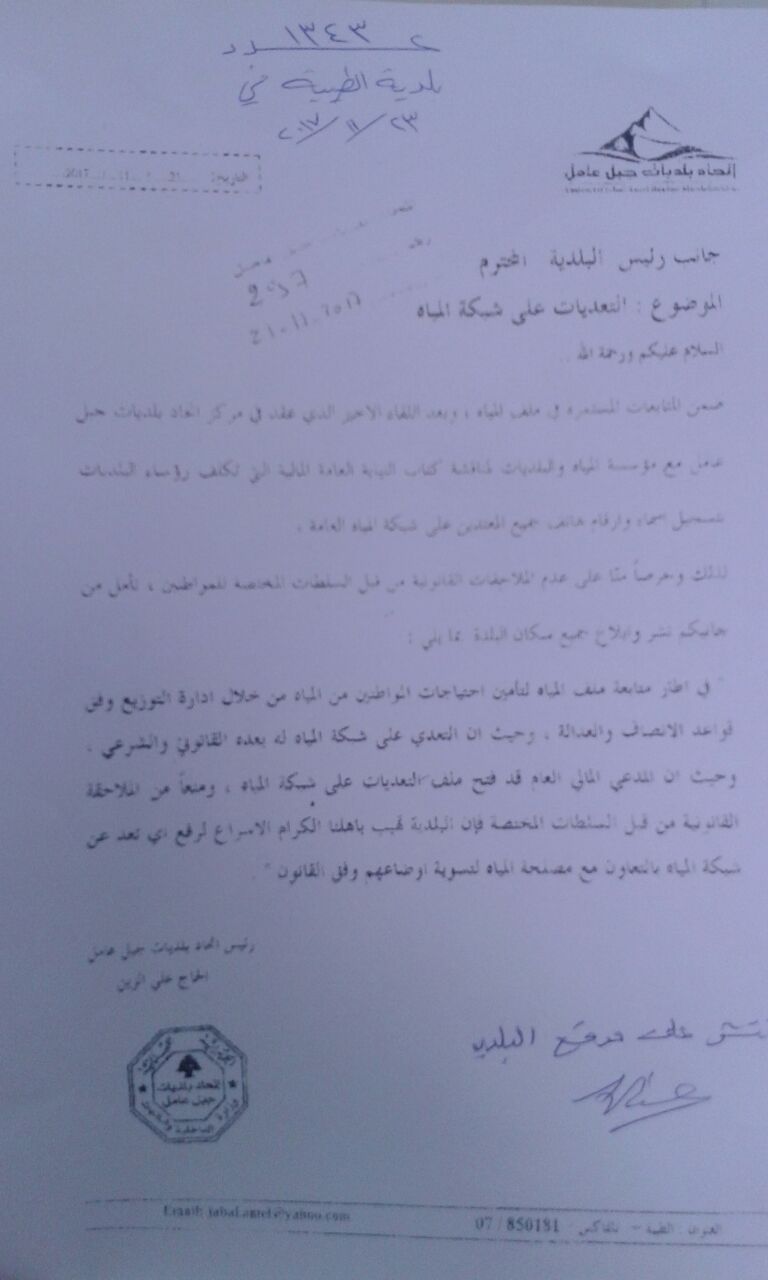 ١٣٤٣
بلدية الطيبة في
٢٣/١١/٢٠١٧
اتحاد بلديات جبل عامل
التاريخ: 21 / 11 / 2017
297
21.11.2017
جانب رئيس البلدية المحترم
الموضوع : التعديات على شبكة المياه
السلام عليكم ورحمة الله ..
ضمن المتابعات المستمرة في ملف المياه ، وبعد اللقاء الاخير الذي عقد في مركز اتحاد بلديات جبل
عامل مع مؤسسة المياه والبلديات لمناقشة كتاب النيابة العامة المالية التي تكلف رؤساء البلديات
بتسجيل اسماء وارقام هاتف جميع المعتدين على شبكة المياه العامة .
لذلك وحرصاً منّا على عدم الملاحقات القانونية من قبل السلطات المختصة للمواطنين ، نأمل من
جانبكم نشر وابلاغ جميع سكان البلدة بما يلي :
" في اطار متابعة ملف المياه لتأمين احتياجات المواطنين من المياه من خلال ادارة التوزيع وفق
قواعد الانصاف والعدالة ، وحيث ان التعدي على شبكة المياه له بعده القانوني والشرعي ،
وحيث ان المدعي المالي العام قد فتح ملف التعديات على شبكة المياه ، ومنعاً من الملاحقة
القانونية من قبل السلطات المختصة فإن البلدية تهيب باهلنا الكرام الاسراع لرفع اي تعد عن
شبكة المياه بالتعاون مع مصلحة المياه لتسوية اوضاعهم وفق القانون " .
رئيس اتحاد بلديات جبل عامل
الحاج علي الزين
على موقع البلدية
اتحاد بلديات
جبل عامل
العنوان : الطيبة – تلفاكس : 07 / 850181
Email: jabal.amel@yahoo.com